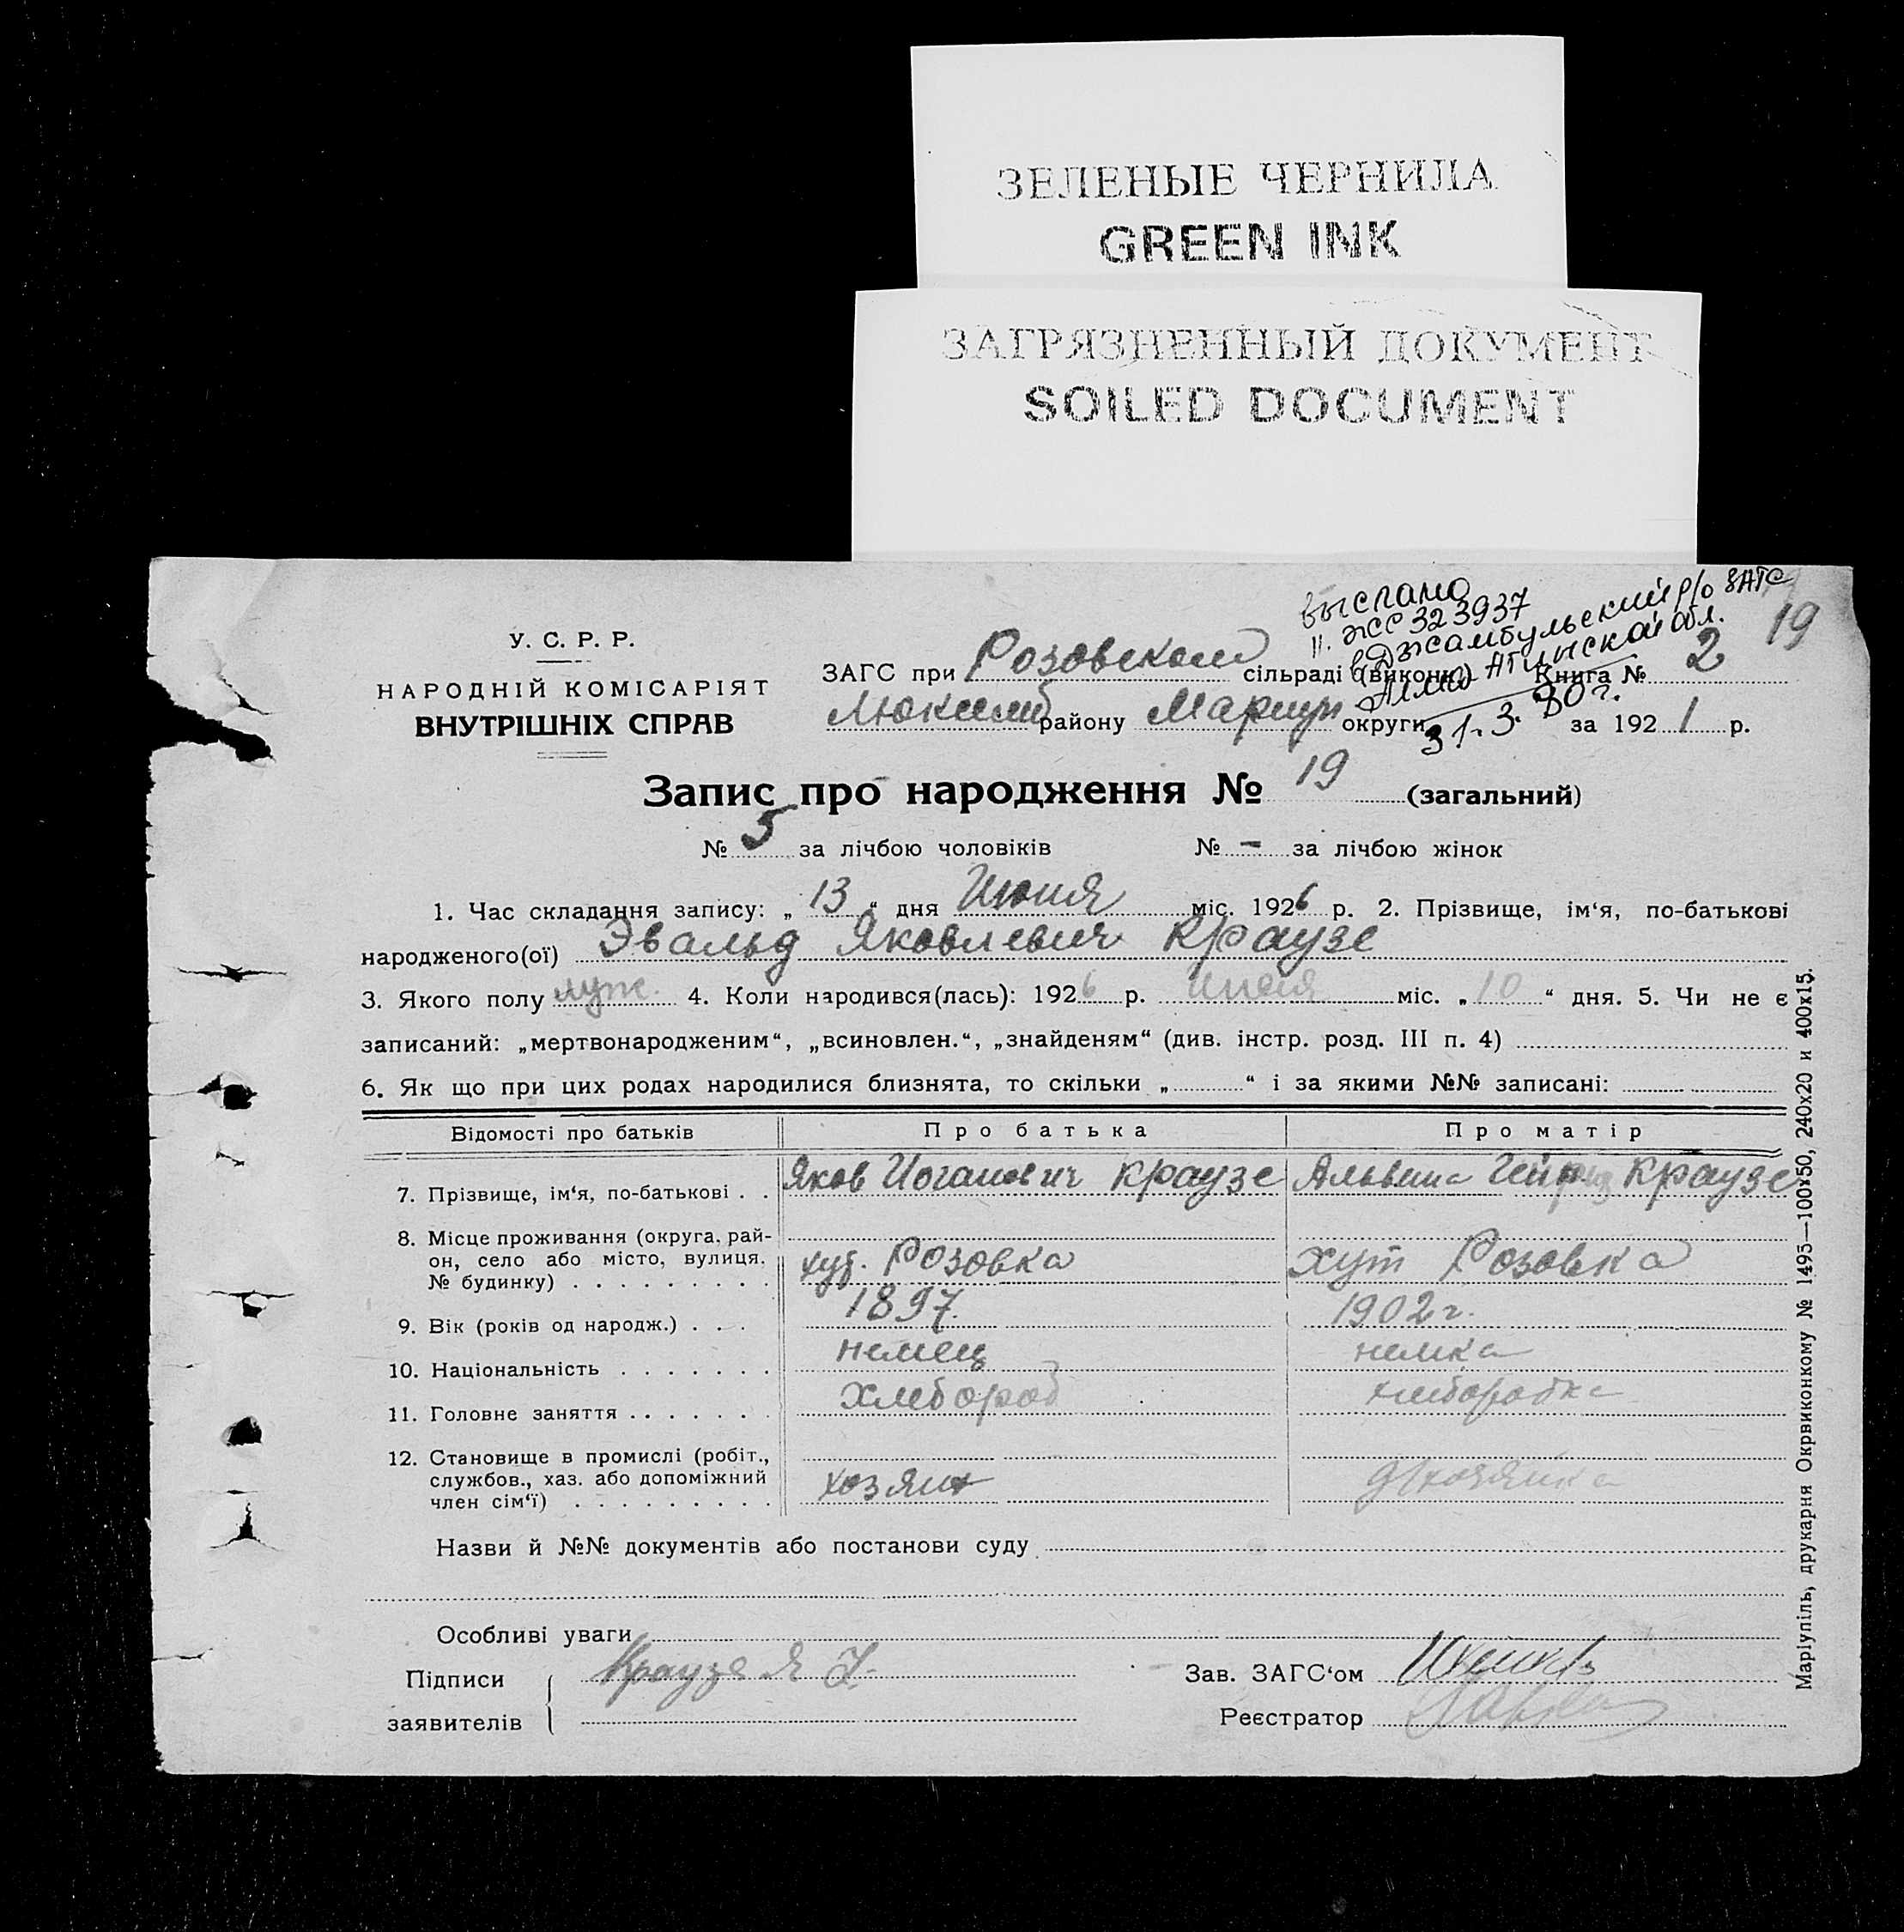 ЗЕЛЕНЫЕ ЧЕРНИЛА
GREEN INK
ЗАГРЯЗНЕННЫЙ ДОКУМЕНТ
SOILED DOCUMENT
выслано
II. ЖСС 323937
в Джамбульский р/о ЗАГС
Алма Атинской обл.
31.3.80 г.
19
У. С. Р. Р.
НАРОДНІЙ КОМІСАРІЯТ
ВНУТРІШНІХ СПРАВ
ЗАГС при Розовском сільраді (виконк.) Книга № 2
району Мариуп округи за 1921 р.
Запис про народження № 19 (загальний)
№ 5 за лічбою чоловіків № – за лічбою жінок
1. Час складання запису: „13“ дня Июня міс. 1926 р. 2. Прізвище, ім‘я, по-батькові
народженого(ої) Эвальд Яковлевич Краузе
3. Якого полу муж. 4. Коли народився(лась): 1926 р. июня міс. „10“ дня. 5. Чи не є
записаний: „мертвонародженим“, „всиновлен.“, „знайденям“ (див. інстр. розд. III п. 4)
6. Як що при цих родах народилися близнята, то скільки „ “ і за якими №№ записані:
Відомості про батьків Про батька Про матір
7. Прізвище, ім‘я, по-батькові . . Яков Иоганович Краузе Альвина Генр Краузе
8. Місце проживання (округа, рай-
он, село або місто, вулиця,
№ будинку) . . . . . . . . . хут. Розовка хут Розовка
9. Вік (років од народж.) . . . 1897. 1902 г.
10. Національність . . . . . . . немец немка
11. Головне заняття . . . . . . . хлебороб хлеборобка
12. Становище в промислі (робіт.,
службов., хаз. або допоміжний
член сім‘ї) . . . . . . . . . хозяин д/хозяйка
Назви й №№ документів або постанови суду
Особливі уваги
Підписи Краузе Я И. Зав. ЗАГС‘ом
заявителів Реєстратор
Маріупіль, друкарня Окрвиконкому № 1495—100х50, 240х20 и 400х15.